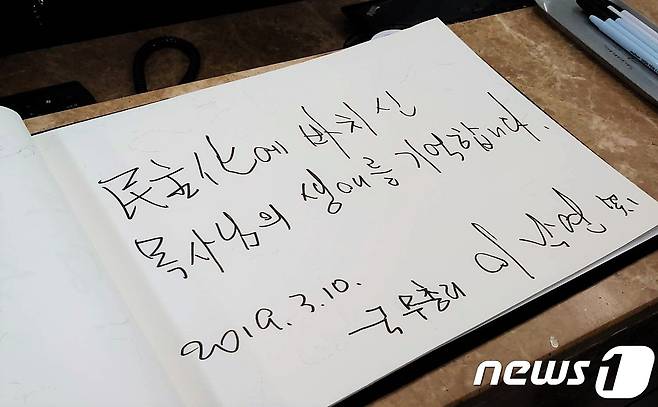 民主化에 바치신
목사님의 생애를 기억합니다.
2019. 3. 10.
국무총리 이낙연
news1